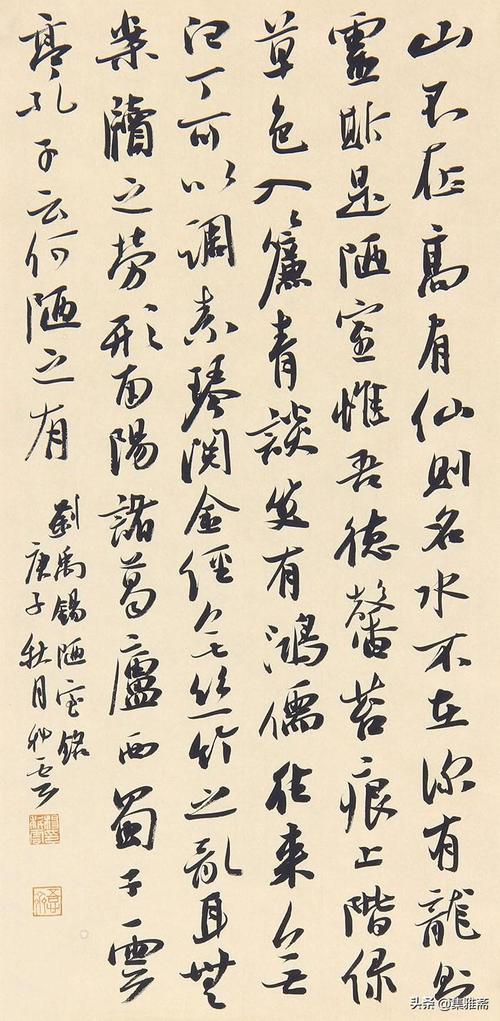 山不在高有仙則名水不在深有龍則
靈斯是陋室惟吾德馨苔痕上階綠
草色入簾青談笑有鴻儒往來無
白丁可以調素琴閱金經無絲竹之亂耳無
案牘之勞形南陽諸葛廬西蜀子雲
亭孔子云何陋之有
劉禹錫陋室銘
庚子秋月
头条 @集雅斋